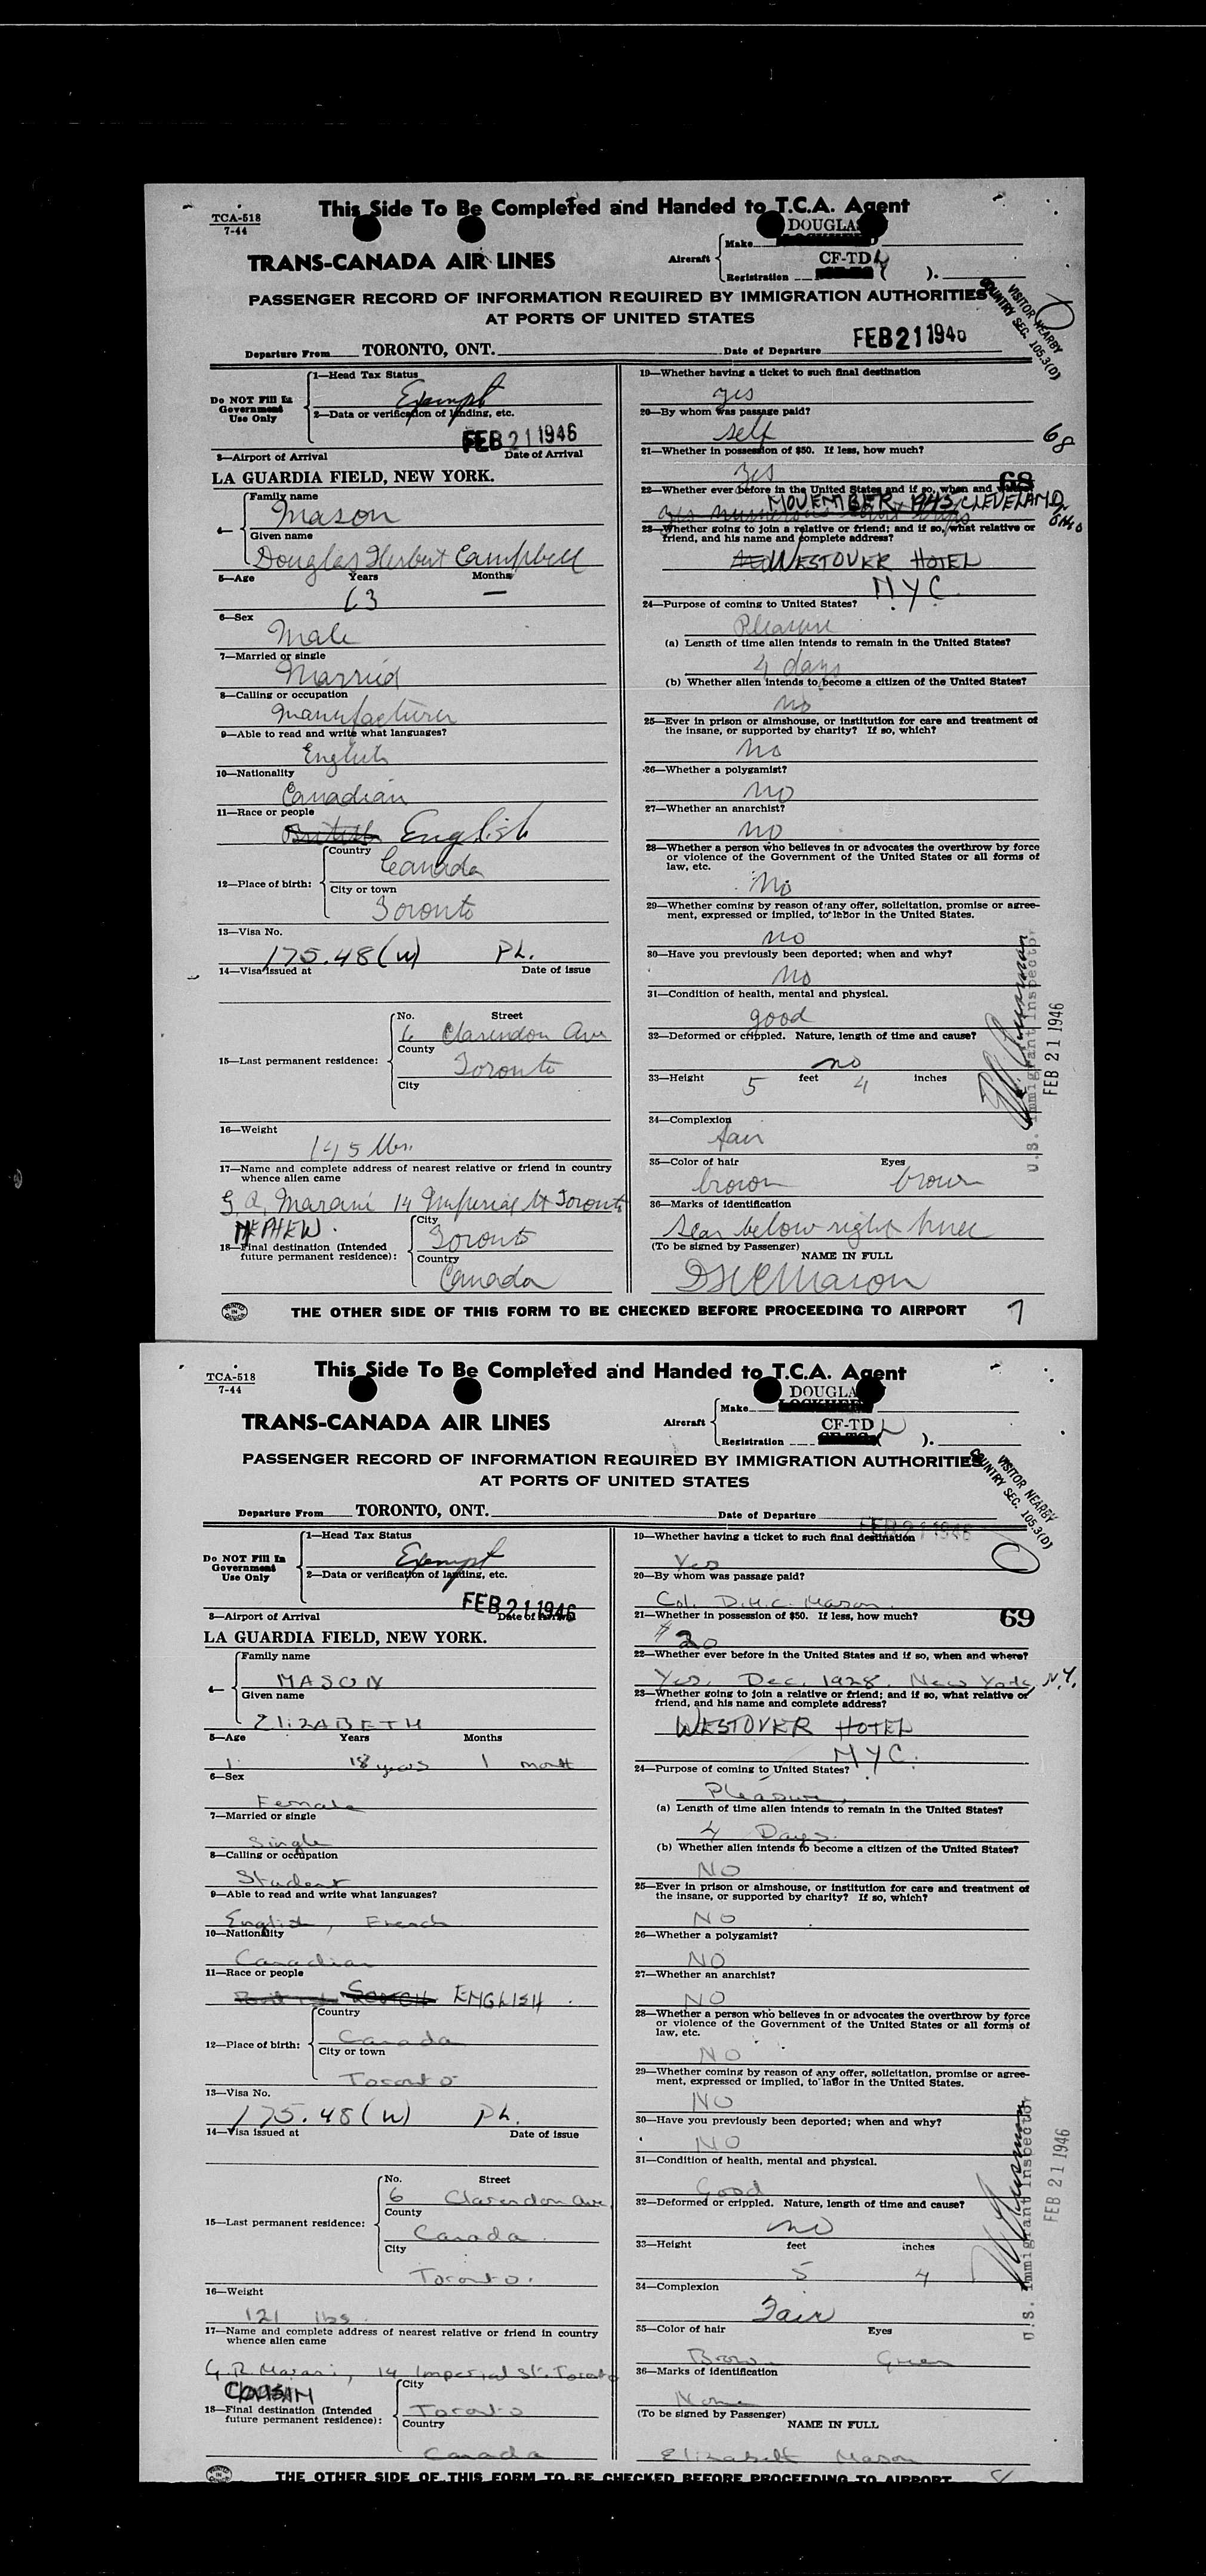 This Side To Be Completed and Handed to T.C.A. Agent
TCA-518
7-44
DOUGLAS
Make
Aircraft
TRANS-CANADA AIR LINES
CF-TD
Registration ( ).
PASSENGER RECORD OF INFORMATION REQUIRED BY IMMIGRATION AUTHORITIES
AT PORTS OF UNITED STATES
VISITOR NEARBY
COUNTRY SEC. 105.3(D)
Departure From TORONTO, ONT. Date of Departure FEB 21 1946
Do NOT Fill In
Government
Use Only
1—Head Tax Status
Exempt
2—Data or verification of landing, etc.
FEB 21 1946
3—Airport of Arrival Date of Arrival
LA GUARDIA FIELD, NEW YORK.
4—
Family name
Mason
Given name
Douglas Herbert Campbell
5—Age Years Months
63 —
6—Sex
Male
7—Married or single
Married
8—Calling or occupation
Manufacturer
9—Able to read and write what languages?
English
10—Nationality
Canadian
11—Race or people
British English
12—Place of birth:
Country
Canada
City or town
Toronto
13—Visa No.
175.48(W) Ph.
14—Visa issued at Date of issue
15—Last permanent residence:
No. Street
6 Clarendon Ave
County
Toronto
City
16—Weight
145 lbs.
17—Name and complete address of nearest relative or friend in country
whence alien came
G. R. Marani 14 Imperial St Toronto
NEPHEW.
18—Final destination (Intended
future permanent residence):
City
Toronto
Country
Canada
19—Whether having a ticket to such final destination
yes
20—By whom was passage paid?
self
68
21—Whether in possession of $50. If less, how much?
yes
68
22—Whether ever before in the United States and if so, when and where?
NOVEMBER 1945 CLEVELAND
OHIO
23—Whether going to join a relative or friend; and if so, what relative or
friend, and his name and complete address?
WESTOVER HOTEL
NYC.
24—Purpose of coming to United States?
Pleasure
(a) Length of time alien intends to remain in the United States?
4 days
(b) Whether alien intends to become a citizen of the United States?
no
25—Ever in prison or almshouse, or institution for care and treatment of
the insane, or supported by charity? If so, which?
no
26—Whether a polygamist?
no
27—Whether an anarchist?
no
28—Whether a person who believes in or advocates the overthrow by force
or violence of the Government of the United States or all forms of
law, etc.
no
29—Whether coming by reason of any offer, solicitation, promise or agree-
ment, expressed or implied, to labor in the United States.
no
30—Have you previously been deported; when and why?
no
31—Condition of health, mental and physical.
good
32—Deformed or crippled. Nature, length of time and cause?
no
33—Height 5 feet 4 inches
34—Complexion
fair
35—Color of hair Eyes
brown brown
36—Marks of identification
Scar below right knee
(To be signed by Passenger)
NAME IN FULL
DHC Mason
U.S. Immigrant Inspector
FEB 21 1946
THE OTHER SIDE OF THIS FORM TO BE CHECKED BEFORE PROCEEDING TO AIRPORT
7
This Side To Be Completed and Handed to T.C.A. Agent
TCA-518
7-44
DOUGLAS
Make LOCKHEED
Aircraft
TRANS-CANADA AIR LINES
CF-TDL
Registration ( ).
PASSENGER RECORD OF INFORMATION REQUIRED BY IMMIGRATION AUTHORITIES
AT PORTS OF UNITED STATES
VISITOR NEARBY
COUNTRY SEC. 105.3(D)
Departure From TORONTO, ONT. Date of Departure
FEB 21 1946
Do NOT Fill In
Government
Use Only
1—Head Tax Status
Exempt
2—Data or verification of landing, etc.
FEB 21 1946
3—Airport of Arrival Date of Arrival
LA GUARDIA FIELD, NEW YORK.
4—
Family name
MASON
Given name
ELIZABETH
5—Age Years Months
18 years 1 month
6—Sex
Female
7—Married or single
Single
8—Calling or occupation
Student
9—Able to read and write what languages?
English, French
10—Nationality
Canadian
11—Race or people
SCOTCH ENGLISH
12—Place of birth:
Country
Canada
City or town
Toronto
13—Visa No.
175.48(W) Ph.
14—Visa issued at Date of issue
15—Last permanent residence:
No. Street
6 Clarendon Ave.
County
Canada
City
Toronto.
16—Weight
121 lbs.
17—Name and complete address of nearest relative or friend in country
whence alien came
G. R. Marani, 14 Imperial St. Toronto
COUSIN
18—Final destination (Intended
future permanent residence):
City
Toronto
Country
Canada
19—Whether having a ticket to such final destination
Yes
20—By whom was passage paid?
Col. D.H.C. Mason.
21—Whether in possession of $50. If less, how much?
69
$20
22—Whether ever before in the United States and if so, when and where?
Yes, Dec. 1928. New York, N.Y.
23—Whether going to join a relative or friend; and if so, what relative or
friend, and his name and complete address?
WESTOVER HOTEL
NYC.
24—Purpose of coming to United States?
Pleasure.
(a) Length of time alien intends to remain in the United States?
4 Days.
(b) Whether alien intends to become a citizen of the United States?
NO
25—Ever in prison or almshouse, or institution for care and treatment of
the insane, or supported by charity? If so, which?
NO
26—Whether a polygamist?
NO
27—Whether an anarchist?
NO
28—Whether a person who believes in or advocates the overthrow by force
or violence of the Government of the United States or all forms of
law, etc.
NO
29—Whether coming by reason of any offer, solicitation, promise or agree-
ment, expressed or implied, to labor in the United States.
NO
30—Have you previously been deported; when and why?
NO
31—Condition of health, mental and physical.
Good
32—Deformed or crippled. Nature, length of time and cause?
no
33—Height feet inches
5 4
34—Complexion
Fair
35—Color of hair Eyes
Brown Green
36—Marks of identification
None
(To be signed by Passenger)
NAME IN FULL
Elizabeth Mason
U.S. Immigrant Inspector
FEB 21 1946
THE OTHER SIDE OF THIS FORM TO BE CHECKED BEFORE PROCEEDING TO AIRPORT